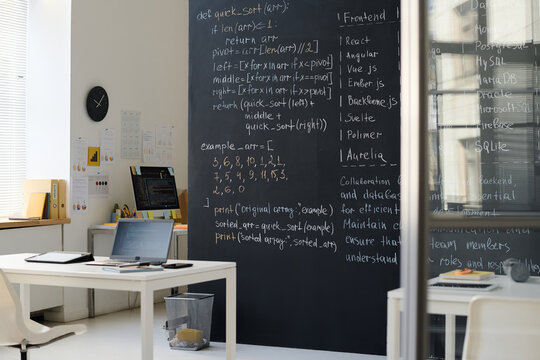 def quick_sort(arr):
if len(arr) ≤ 1:
return arr
pivot = arr[len(arr)//2]
left = [x for x in arr if x < pivot]
middle = [x for x in arr if x == pivot]
right = [x for x in arr if x > pivot]
return (quick_sort(left) +
middle +
quick_sort(right)
example_arr = [
3, 6, 8, 10, 1, 2, 1,
7, 5, 4, 9, 11, 15, 3,
2, 6, 0
]
print("original array:", example)
sorted_arr = quick_sort(example)
print("sorted array:", sorted_arr)
Frontend
React
Angular
Vue js
Ember js
Backbone js
Svelte
Polimer
Aurelia
Collaboration
and databas
for efficient
Maintain c
ensure that
understand
MySQL
MariaDB
Oracle
Microsoft
Firebase
SQLite
backend,
team members